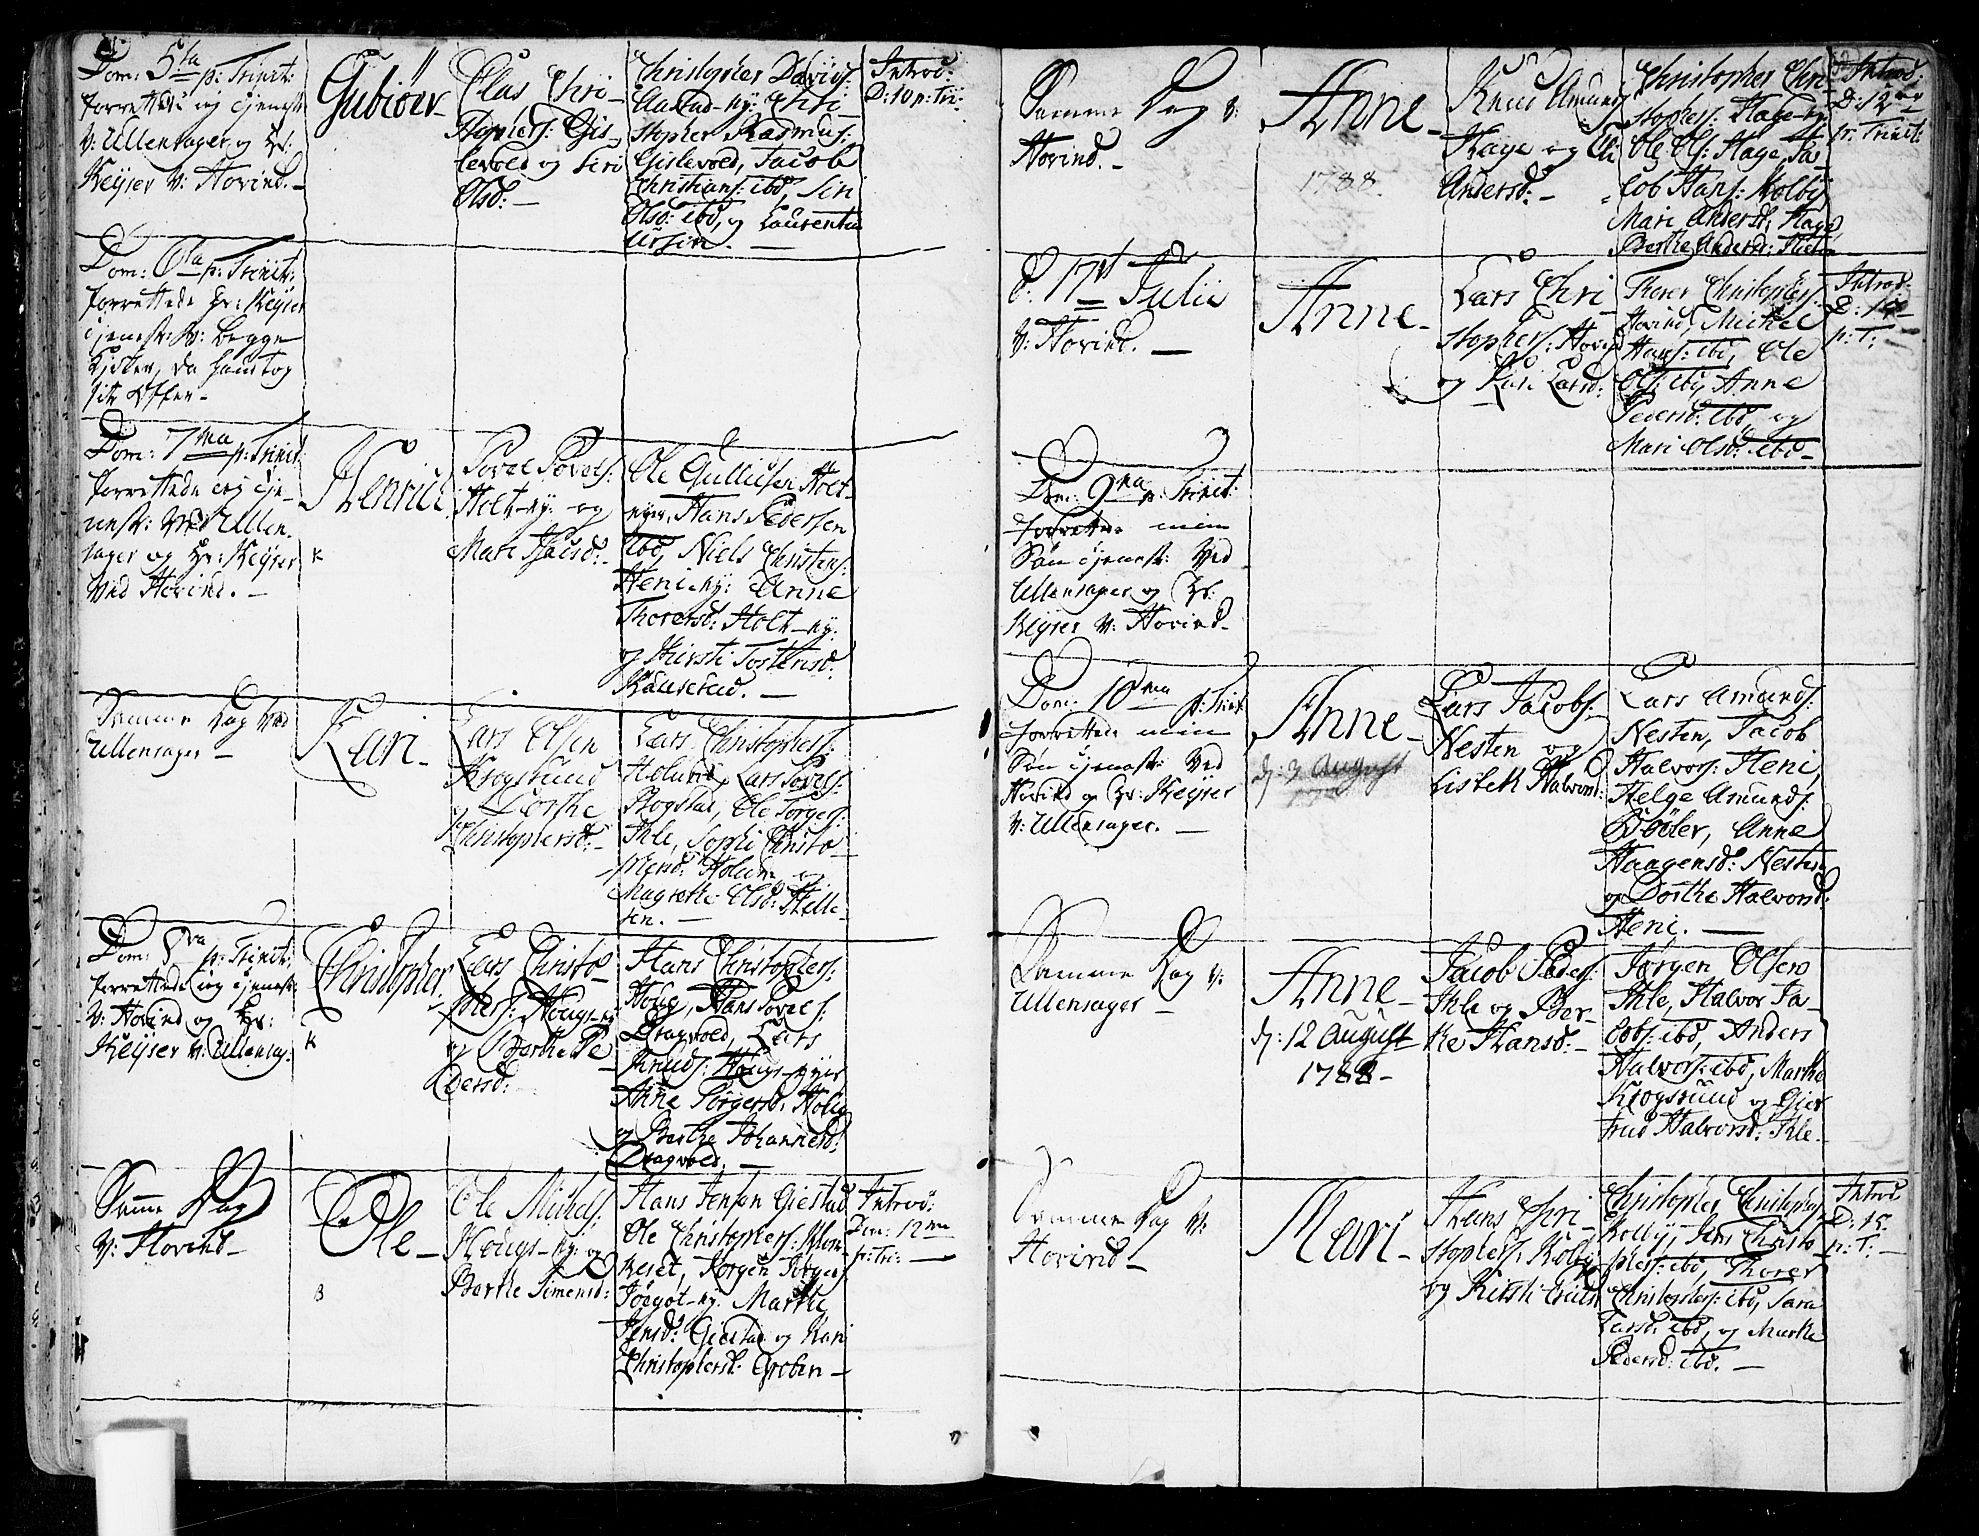 Dom: 5ta p: Trinit:
forrettede jeg tjenest:
V: Ullensager og Hr:
Keÿser V: Hovind.-
Gubiör-
Olas Chri-
stophers: Gis-
levold og Siri
Olsd:-
Christopher Davids:
Aastad-ny: Chri-
stopher Rasmus:
Gislevold, Jacob
Christians: ibd, Siri
Olsd: ibd, og Laurentia
Ursin.-
Introd:
D: 10 p: Tri:
Dom: 6ta p: Trinit:
forrettede Hr: Keÿser
tjenest: V: begge
Kirker, da hand tog
sit Offer-
Dom: 7ma p: Trinit:
forrettede jeg tje-
nest: Ved Ullen-
sager og Hr: Keÿser
Ved Hovind.-
Henric
K
Povel Povels:
Holt-ny: og
Mari Isacsd:-
Ole Gullicsen Holt-
nyer, Hans Pedersen
ibd, Niels Christens:
Heni-ny: Anne
Thoresd: Holt-ny:
og Kirsti Tostensd:
Kauserud.-
Samme Dag Ved
Ullensager-
Kari-
Lars Olsen
Krogsrud
og Dorthe
Christophersd:-
Lars Christophers:
Holum, Lars Povels:
Rogstad, Ole Torgers:
Ihle, Sophi Christo-
phersd: Holum og
Magrethe Olsd: Helle-
sen.-
Dom: 8va p: Trinit:
forrettede jeg tjenest:
V: Hovind og Hr:
Keÿser V: Ullensag:
Christopher
K
Lars Christo-
phers: Houg-ny
og Berthe Pe-
dersd:
Hans Christophers:
Houg, Hans Povels:
Dragvold, Lars
Knuds: Hougs-nyer
Anne Torgersd: Houg
og Berthe Johannesd:
Dragvold.-
Samme Dag
V: Hovind-
Ole-
B
Ole Michels:
Hougs-ny: og
Berthe Simensd:
Hans Jensen Gjestad
Ole Christophers: Klom-
keset, Jörgen Torgers:
Jögot-ny: Marthe
Jensd: Gjestad og Kari
Christophersd: Groben-
Introd:
Dom: 12ma
p: Tri:-
Samme Dag V:
Hovind.-
Anne-
1788
Knud Amunds:
Hage og Eli
Andersd:-
Christopher Chri-
stophers: Hage-ny
Ole Ols: Hage, Ja-
cob Hans: Kolbÿ
Mari Andersd: Hage
Berthe Andersd:
Introd:
D: 12ma
p: Trinit:
d: 17de Julii
V: Hovind.-
Anne-
Lars Chri-
stophers: Hovind
og Kari Larsd:
Thorer Christophers:
Hovind, Michel
Hans: ibd, Ole
Ols: ibd, Anne
Pedersd: ibd og
Mari Olsd: ibd-
Introd:
D: 14
p: T:-
Dom: 9na p: Trinit:
forrettede min
Søn tjenest: Ved
Ullensager og Hr:
Keÿser V: Hovind-
Dom: 10ma p: Trinit
forrettede min
Søn tjenest: Ved
Hovind og Hr: Keÿser
V: Ullensager.-
Anne-
dj: 3 August
Lars Jacobs:
Nesten og
Lisbeth Halvorsd:
Lars Amunds:
Nesten, Jacob
Halvors: Heni,
Helge Amunds:
Böler, Anne
Haagensd: Nesten
og Dorthe Halvorsd:
Heni.-
Samme Dag V:
Ullensager-
Anne-
dj: 12 August
1788-
Jacob Peders:
Ihle og Ber-
the Hansd:-
Jørgen Olsen
Ihle, Halvor Ja-
cobs: ibd, Anders
Halvors: ibd, Marthe
Krogsrud og Gier-
trud Halvorsd: Ihle-
Samme Dag V:
Hovind-
Mari-
Hans Chri-
stophers: Kolbÿ
og Kirsti
Christopher Christophers:
Kolbÿ, Jens Christo-
phers: ibd, Thorer
Christophers: ibd, Sara
Larsd: ibd, og Marthe
Pedersd: ibd.-
Introd
D: 15
p: T:-